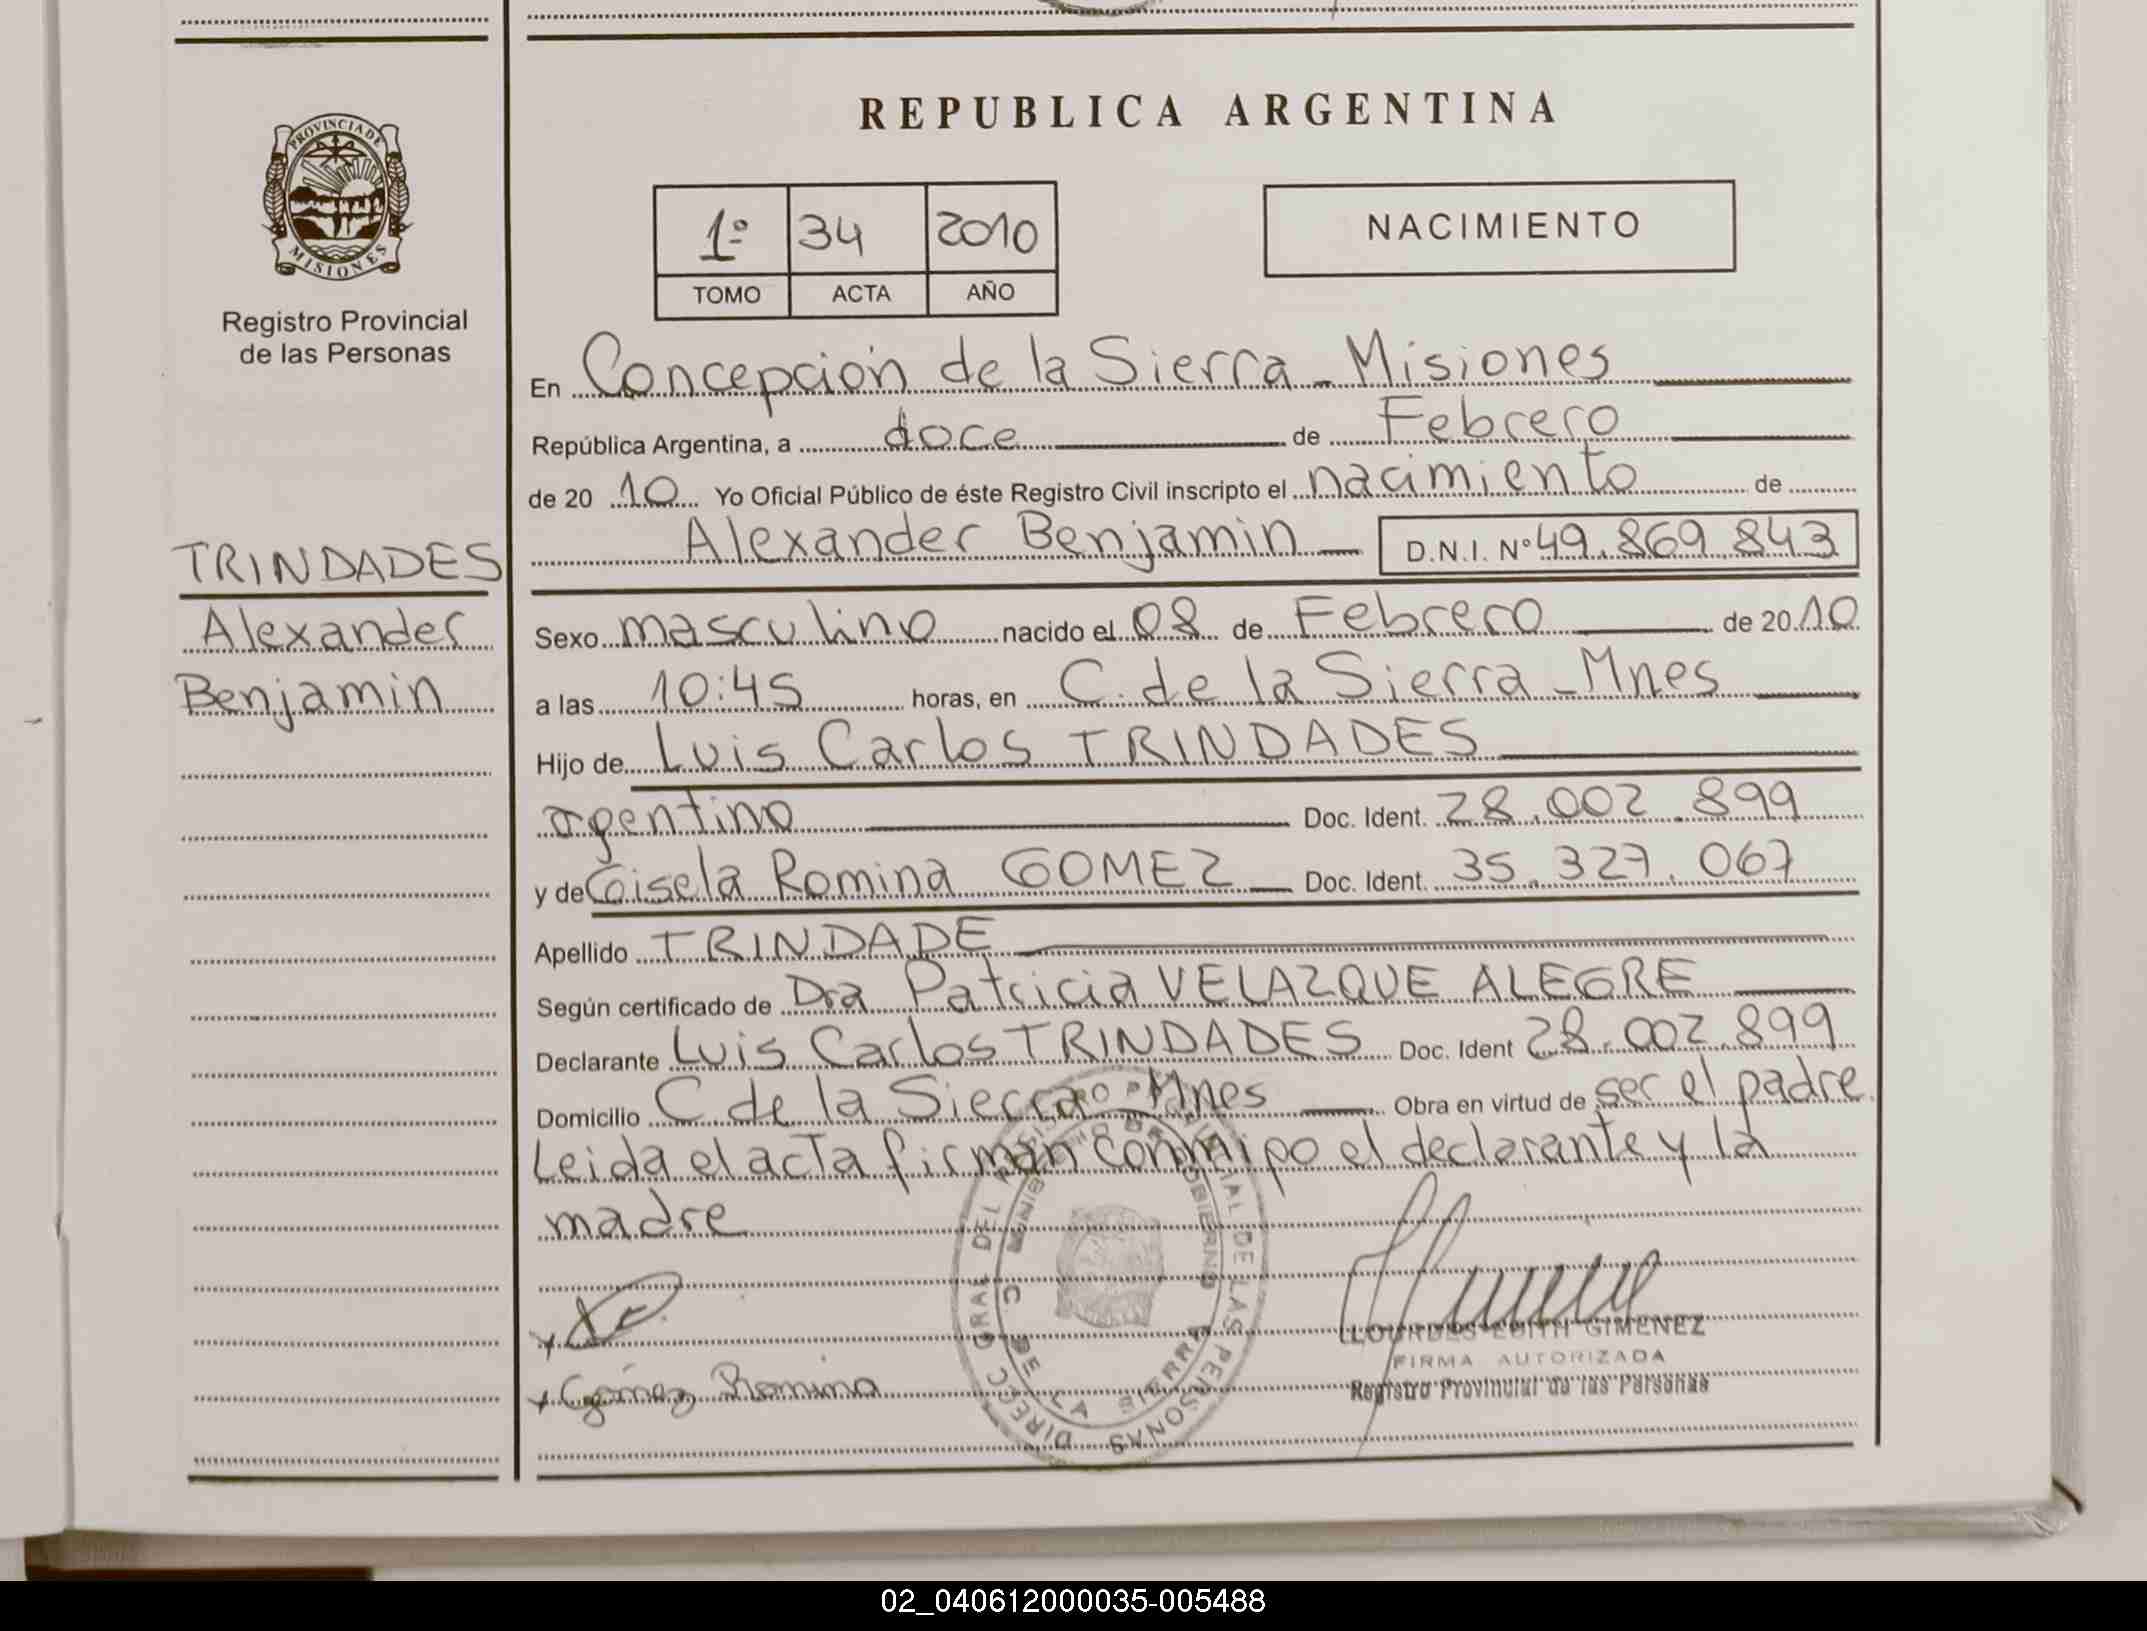 REPUBLICA ARGENTINA
PROVINCIA DE
MISIONES
Registro Provincial
de las Personas
1º 34 2010
TOMO ACTA AÑO
NACIMIENTO
En Concepción de la Sierra - Misiones
República Argentina, a doce de Febrero
de 20 10 Yo Oficial Público de éste Registro Civil inscripto el nacimiento de
Alexander Benjamin D.N.I. Nº 49.869.843
TRINDADES
Alexander
Benjamin
Sexo masculino nacido el 08 de Febrero de 2010
a las 10:45 horas, en C. de la Sierra - Mnes
Hijo de Luis Carlos TRINDADES
argentino Doc. Ident. 28.002.899
y de Gisela Romina GOMEZ Doc. Ident. 35.327.067
Apellido TRINDADE
Según certificado de Dra Patricia VELAZQUE ALEGRE
Declarante Luis Carlos TRINDADES Doc. Ident 28.002.899
Domicilio C de la Sierra - Mnes Obra en virtud de ser el padre
Leida el acta firman conmipo el declarante y la
madre
DIREC. GRAL DEL REGISTRO PROVINCIAL DE LAS PERSONAS
C DE LA SIERRA
LOURDES EDITH GIMENEZ
FIRMA AUTORIZADA
Registro Provincial de las Personas
x Gómez Romina
02_040612000035-005488